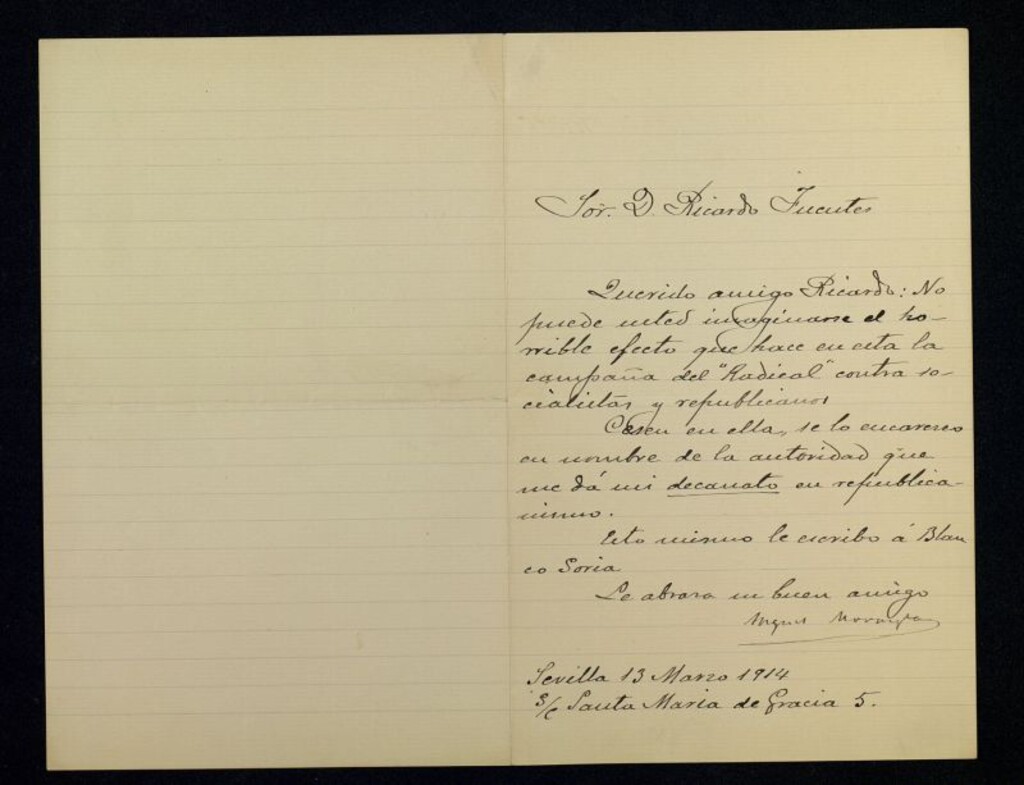 Sor. D. Ricardo Fuentes
Querido amigo Ricardo: No
puede usted imaginarse el ho-
rrible efecto que hace en esta la
campaña del "Radical" contra so-
cialistas y republicanos
Cesen en ella, se lo encarezco
en nombre de la autoridad que
me dá mi decanato en republica-
nismo.
Esto mismo le escribo á Blan
co Soria
Le abraza su buen amigo
Miguel
Sevilla 13 Marzo 1914
S/C Santa Maria de Gracia 5.